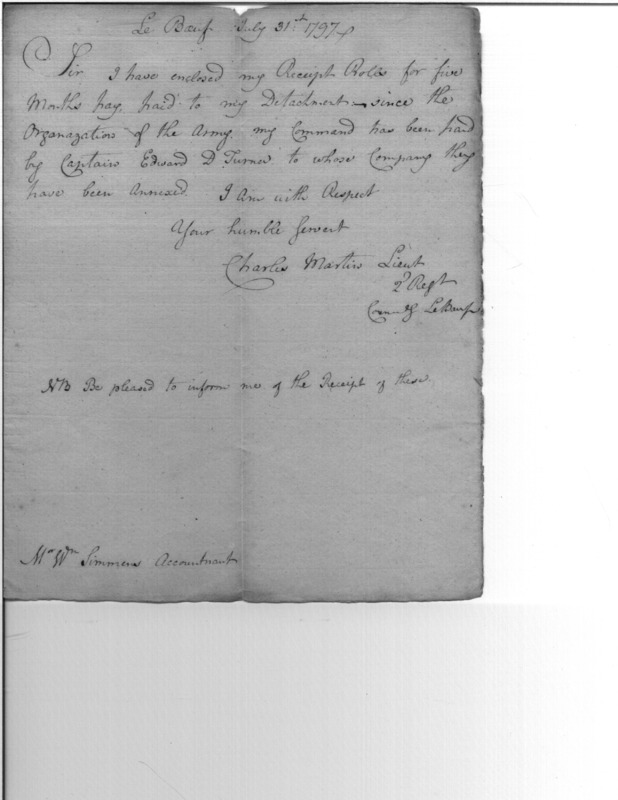 Le Bœuf July 31.st 1797
Sir I have enclosed my Receipt Rolls for five
Months pay, paid to my Detachment - since the
Organazation of the Army. my Command has been paid
by Captain Edward D Turner to whose Company they
have been Annexed. I Am with Respect
Your humble Servent
Charles Martin Lieut
2d Regt
Commdg LeBœuf
NB Be pleased to inform me of the Receipt of these.
Mr Wm Simmens Accountnant